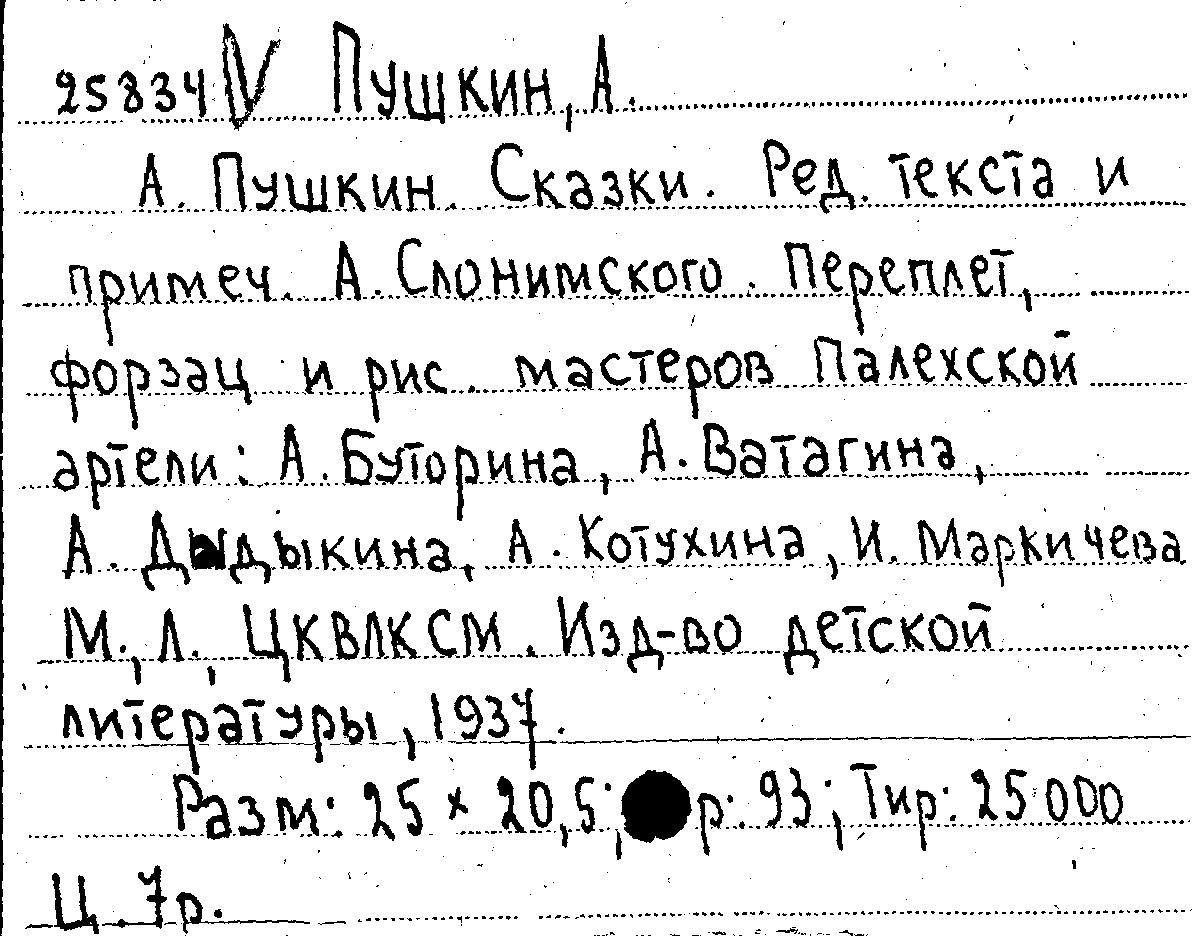 25834 V Пушкин, А.
А. Пушкин. Сказки. Ред. текста и
примеч. А. Слонимского. Переплет,
форзац и рис. мастеров Палехской
артели: А. Буторина, А. Ватагина,
А. Дыдыкина, А. Котухина, И. Маркичева
М., Л., ЦКВЛКСМ. Изд-во детской
литературы, 1937.
Разм: 25 × 20,5; р: 93; Тир: 25000
Ц. 7р.